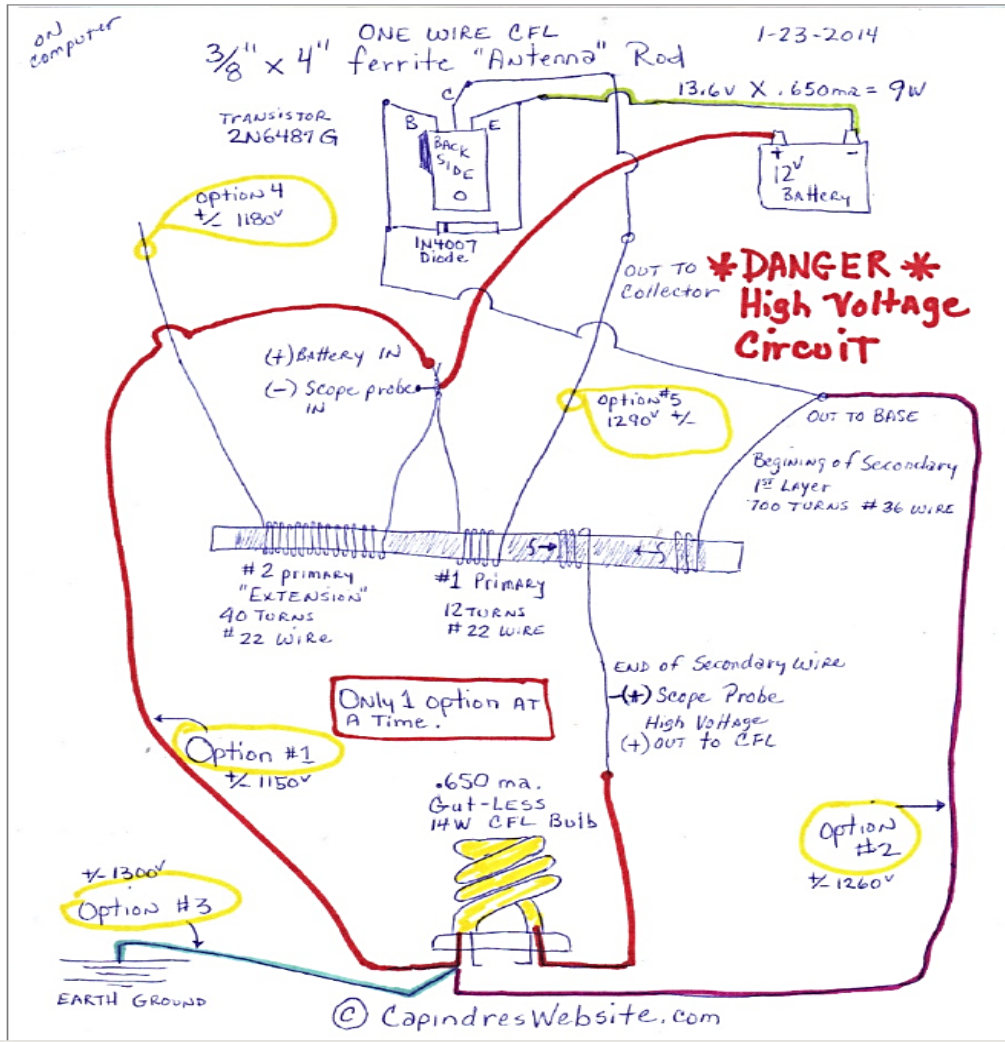 ON
computer
ONE WIRE CFL
3/8" x 4" ferrite "Antenna" Rod
1-23-2014
13.6v X .650ma = 9W
TRANSISTOR
2N6487G
B
C
E
BACK
SIDE
O
+
-
12v
BAttery
1N4007
Diode
Option 4
+/- 1180v
OUT TO
Collector
*DANGER*
High Voltage
Circuit
(+) BAttery IN
(-) Scope probe
IN
Option #5
1290v +/-
OUT TO BASE
Begining of Secondary
1st LAyer
700 TURNS #36 WIRE
S→
←S
#2 primary
"EXTENSION"
40 TURNS
#22 WiRe
#1 Primary
12 TURNS
#22 WIRE
END of Secondary Wire
(+) Scope Probe
High Voltage
(+) OUT to CFL
Only 1 option AT
A Time.
Option #1
+/- 1150v
.650 ma.
Gut-Less
14W CFL Bulb
Option
#2
+/- 1260v
+/- 1300v
Option #3
EARTH GROUND
© CapindresWebsite.com